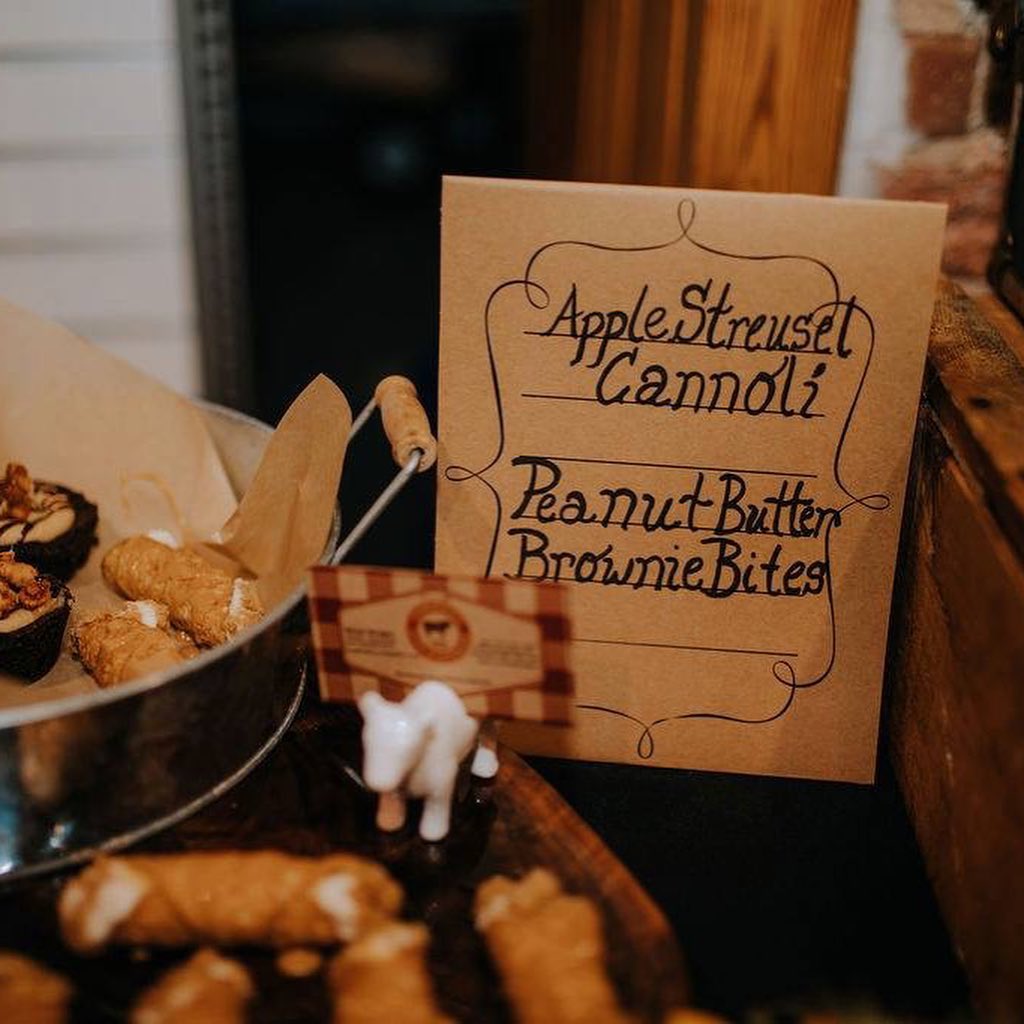 Apple Streusel
Cannoli
Peanut Butter
Brownie Bites